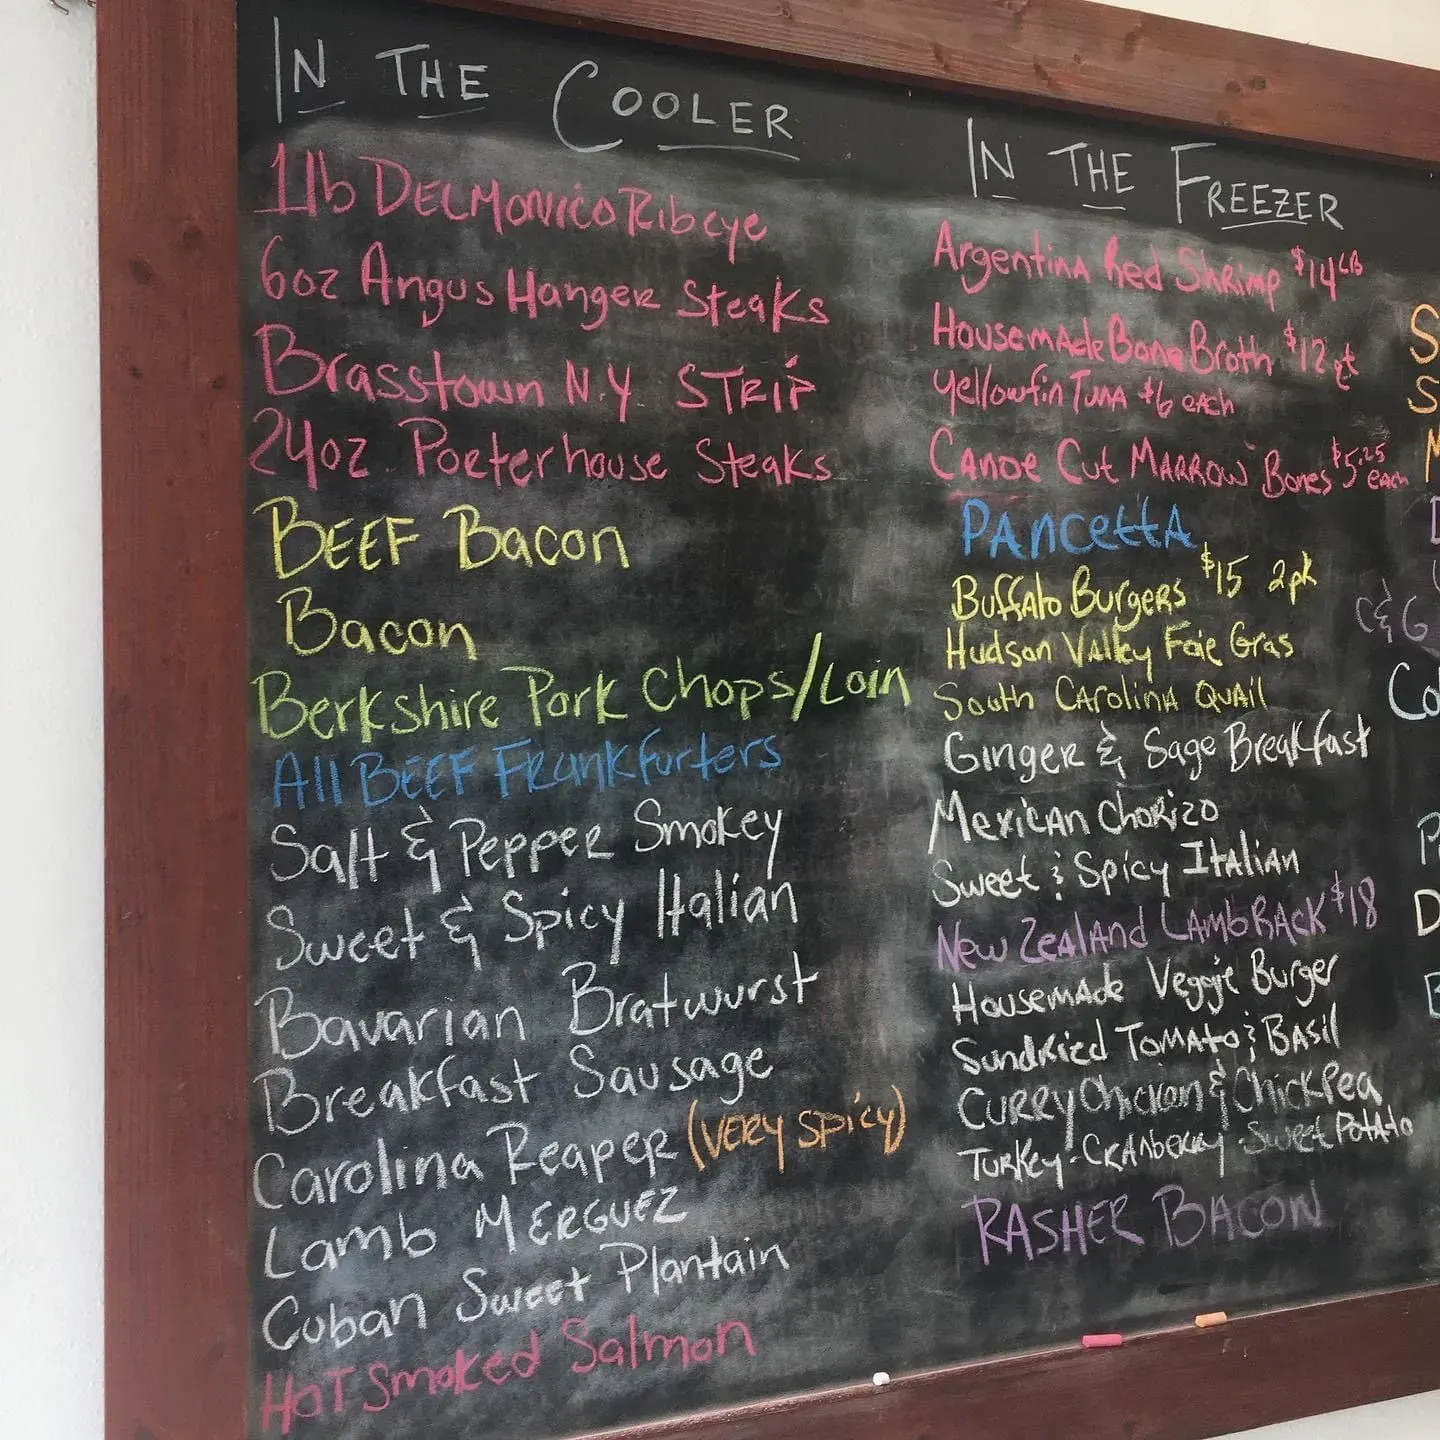 IN THE COOLER
1lb DELMONICO Ribeye
6oz Angus Hanger Steaks
Brasstown N.Y. STRIP
24oz. Poeterhouse Steaks
BEEF Bacon
Bacon
Berkshire Pork Chops/Loin
All BEEF Frankfurters
Salt & Pepper Smokey
Sweet & Spicy Italian
Bavarian Bratwurst
Breakfast Sausage
Carolina Reaper (VERY SPICY)
Lamb MERGUEZ
Cuban Sweet Plantain
HOT Smoked Salmon
IN THE FREEZER
Argentina Red Shrimp $14 LB
Housemade Bone Broth $12 qt
Yellowfin Tuna $6 each
Canoe Cut Marrow Bones $5.25 each
PANCETTA
Buffalo Burgers $15 2pk
Hudson Valley Foie Gras
South Carolina Quail
Ginger & Sage Breakfast
Mexican Chorizo
Sweet & Spicy Italian
New Zealand Lamb Rack $18
Housemade Veggie Burger
Sundried Tomato & Basil
Curry Chicken & ChickPea
Turkey-Cranberry-Sweet Potato
RASHER BACON
C&G
Co